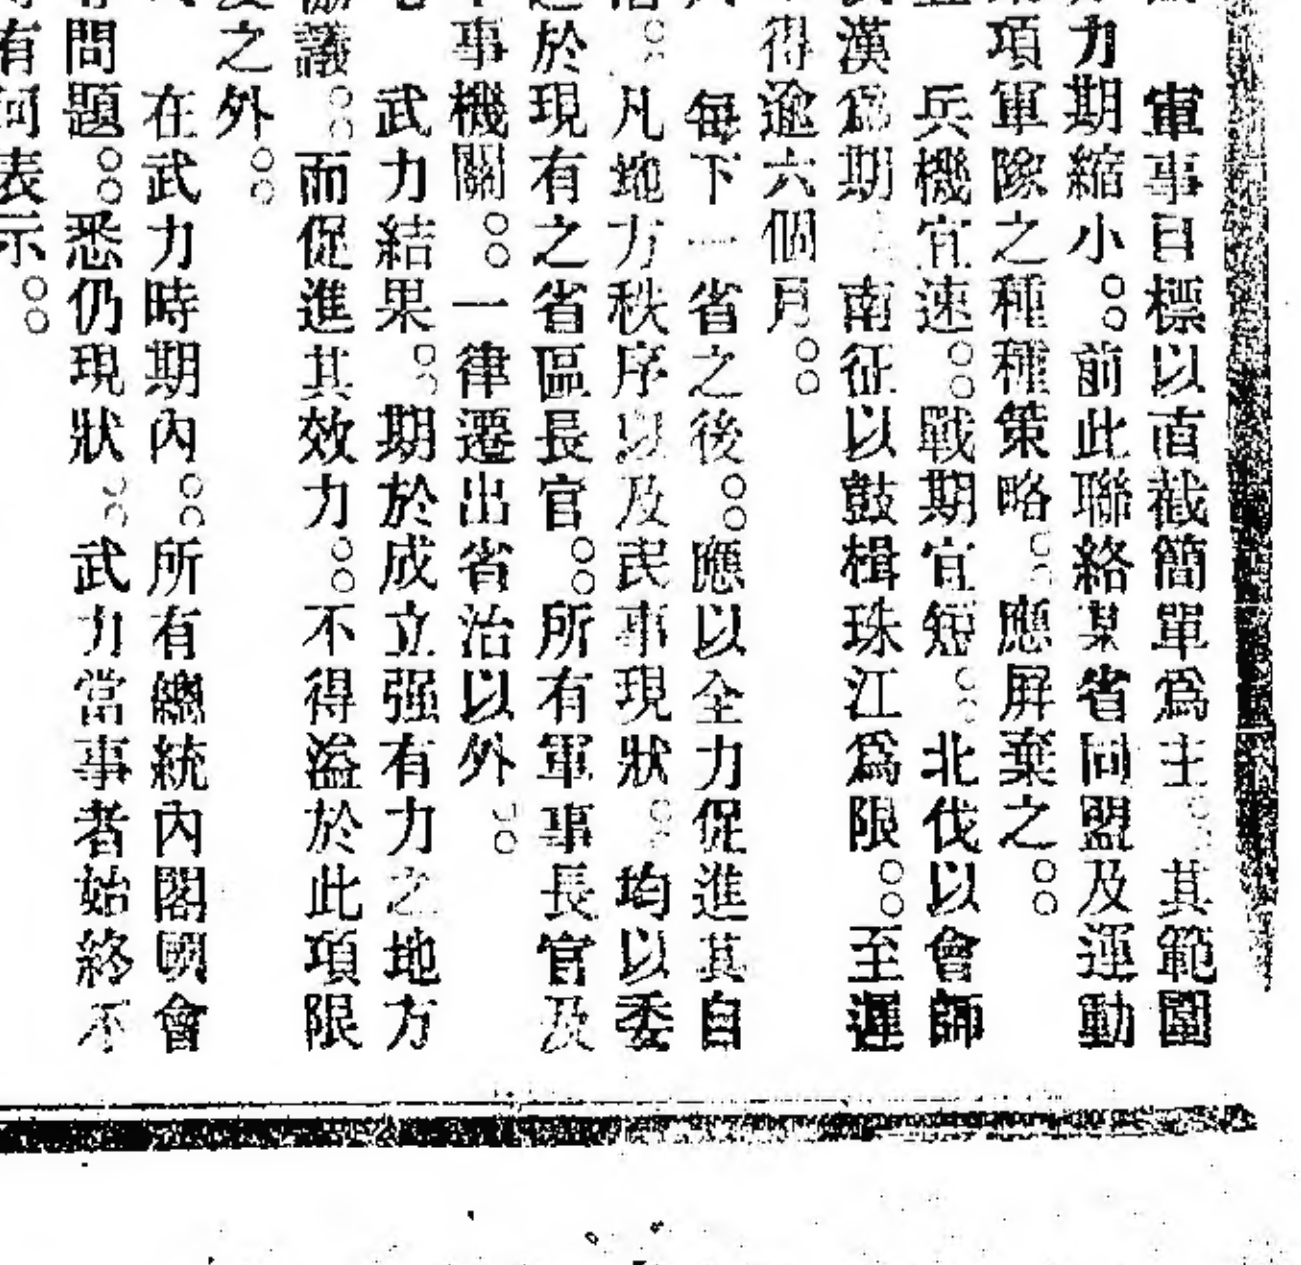 軍事目標以直截簡單爲主。其範圍
力期縮小。前此聯絡某省同盟及運動
項軍隊之種種策略。應屏棄之。
兵機宜速。戰期宜短。北伐以會師
漢爲期。南征以鼓楫珠江爲限。至遲
得逾六個月。
每下一省之後。應以全力促進其自
。凡地方秩序以及民事現狀。均以委
於現有之省區長官。所有軍事長官及
事機關。一律遷出省治以外。
武力結果。期於成立强有力之地方
議。而促進其效力。不得溢於此項限
之外。
在武力時期內。所有總統內閣國會
問題。悉仍現狀。武力當事者始終不
有何表示。